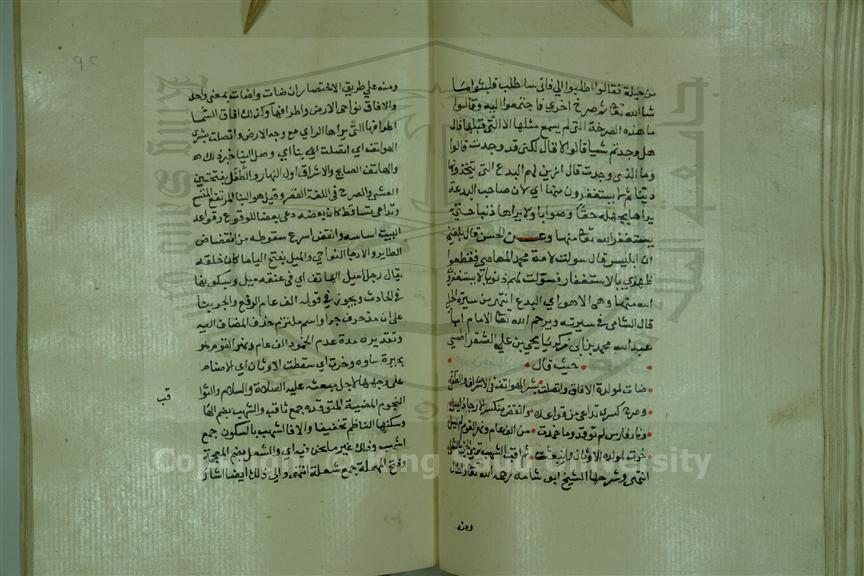 من حيلة فقالوا اطلبوا لي فاني سا طلب فلبثوا ما
شا الله تعالى ثم صرخ اخري فاجتمعوا اليه وقالوا
ما هذه الصرخة التي لم يسمع مثلها الا التي قبلها قال
هل وجدتم شيا قالوا لا قال لكني قد وجدت قالوا
وما الذي وجدت قال ازين لهم البدع التي يتخذونها
دينا ثم لا يستغفرون منها اي لان صاحب البدعة
يراها بجهله حقا وصوابا ولا يراها ذنبا حتى
يستغفر الله تعالى منها وعن الحسن قال بلغني
ان ابليس قال سولت لامة محمد المعاصي فقطعوا
ظهري بالاستغفار فسولت لهم ذنوبا لا يستغفرون
الله منها وهي الاهواء اي البدع انتهى من سيرة الحلبي
قال الشامي في سيرته ويرحم الله تعالى الامام ابا
عبد الله محمد بن ابي زكريا يحيى بن علي الشقراطسي
حيث قال
ضات لمولده الافاق واتصلت بشر الهواتف في الاشراق والطفل
وصرح كسري تداعي من قواعده وانقض منكسر الارجا ذا ميل
ونار فارس لم توقد وما خمدت من الف عام ونهر القوم لم يسل
خرت لمولده الاوثان وانبعثت ثواقب الشهب ترمي الجن بالشعل
انتهى وشرحها الشيخ ابو شامة رحمه الله تعالى فقال
ومنه
ومنه على طريق الاختصار ان ضات واضات بمعنى واحد
والافاق نواحي الارض واطرافها وكذلك افاق السما
اطرافها التي يراها الراي مع وجه الارض واتصلت بشري
الهواتف اي اتصلت الي بنا اي وصل الينا خبر ذلك
والهاتف الصايح والاشراق اول النهار والطفل بفتحتين
العشي والصرح في اللغة القصر وقيل هو البنا المرتفع المتسع
وتداعي بتساقط كان بعضه دعي بعضا للوقوع وقواعد
البيت اساسه وانقض اسرع سقوطه من انقضاض
الطاير والارجا النواحي والميل بفتح اليا ما كان خلقه
يقال رجل اميل العاتق اي في عنقه ميل وبسكونها
في الحادث ويجوز في قوله الف عام الرفع والجر بنا
على ان منذ حرف جر او اسم ملتزم حذف المضاف اليه
وتقديره مدة عدم الخمود الف عام ونهر القوم هو
بحيرة ساوه وخرت اي سقطت الاوثان اي الاصنام
على وجهها لاجل مبعثه عليه الصلاة والسلام والثوا
قب
النجوم المضيية المتوقدة جمع ثاقب والشهب بضم الها
وسكنها الناظم تخفيفا والا فالشهب بالسكون جمع
اشهب وذلك غير ما نحن فيه اي والشعل بضم المعجمة
وفتح المهملة جمع شعلة انتهى والي ذلك ايضا اشار
Copyright © King Saud University